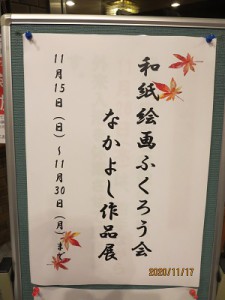 和紙絵画ふくろう会
なかよし作品展
11月15日（日）～11月30日（月）まで
2020/11/17